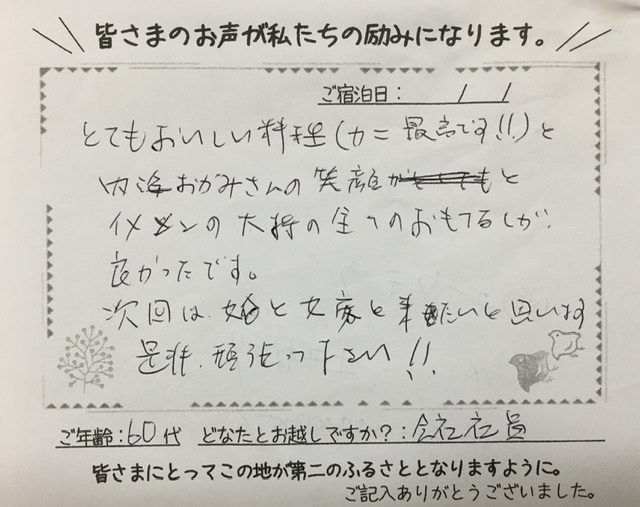 皆さまのお声が私たちの励みになります。
ご宿泊日: / /
とてもおいしい料理(カニ 最高です!!)と
おかみさんの笑顔と
イメメンの大将の全てのおもてるしが
良かったです。
次回は と 女房と来たいと思います
是非、頑張って下さい!!
ご年齢:60代 どなたとお越しですか?:会社社員
皆さまにとってこの地が第二のふるさととなりますように。
ご記入ありがとうございました。